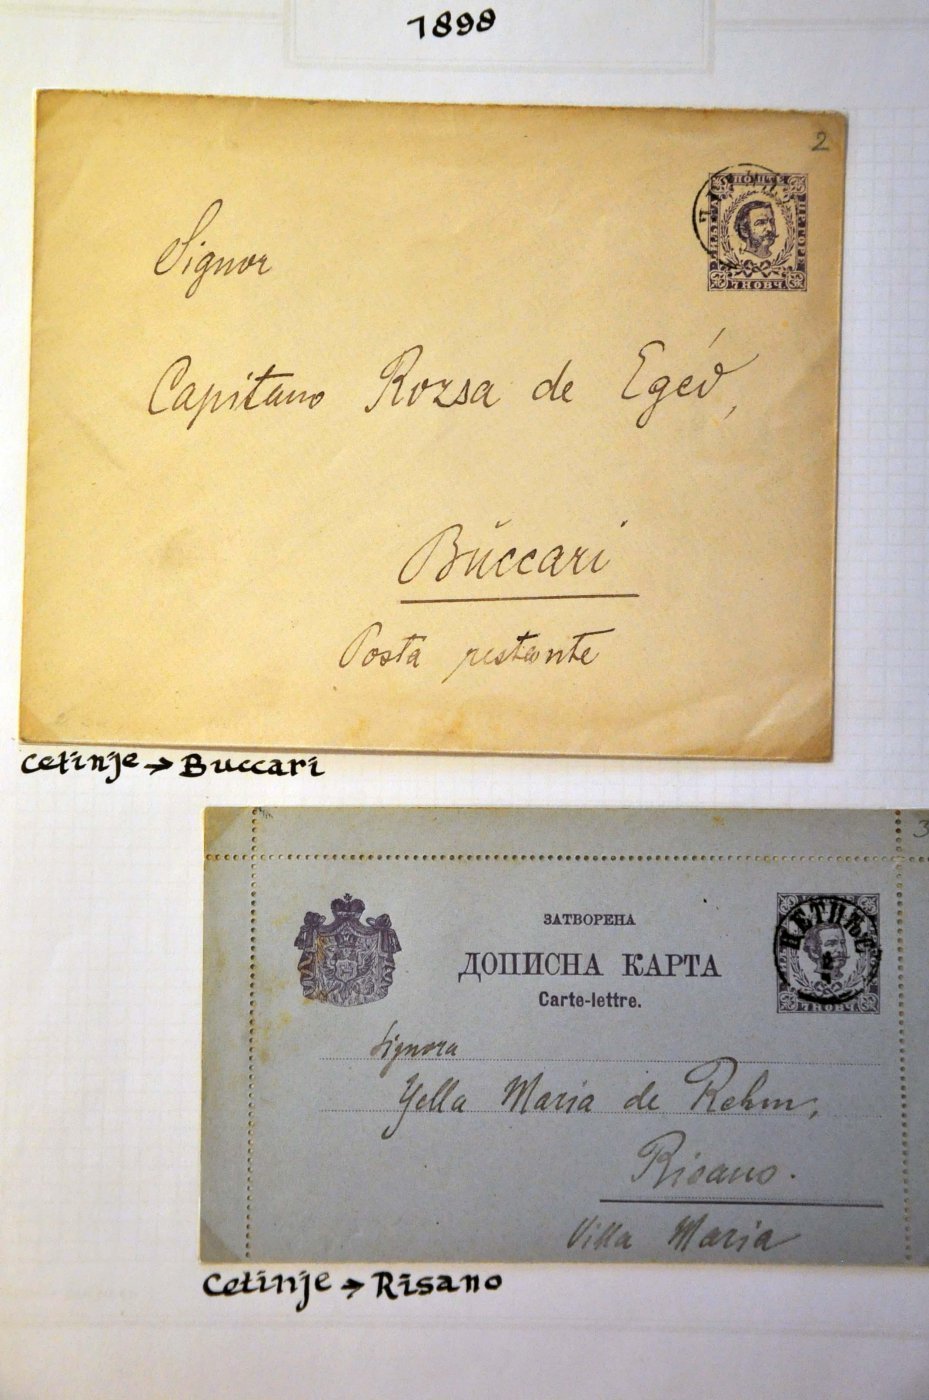 1898
2
ПОШТЕ
7 НОВЧ.
Signor
Capitano Rozsa de Egéd,
Buccari
Posta restante
Cetinje → Buccari
3
ЗАТВОРЕНА
ДОПИСНА КАРТА
Carte-lettre.
ЦЕТИЊЕ
7 НОВЧ.
Signora
Yella Maria de Rehm,
Risano.
Villa Maria
Cetinje → Risano